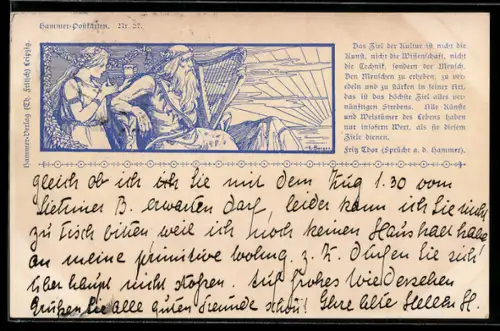 Hammer-Postkarten. Nr. 27.
Hammer-Verlag (Th. Fritsch) Leipzig.
Das Ziel der Kultur ist nicht die
Kunst, nicht die Wissenschaft, nicht
die Technik, sondern der Mensch.
Den Menschen zu erheben, zu ver-
edeln und zu stärken in seiner Art,
das ist das höchste Ziel alles ver-
nünftigen Strebens. Alle Künste
und Weistümer des Lebens haben
nur insofern Wert, als sie diesem
Ziele dienen.
Fritz Thor (Sprüche a. d. Hammer).
gleich ob ich Sie mit dem Zug 1.30 vom
B. erwarten darf, leider kann ich Sie nicht
zu Tisch bitten weil ich noch keinen Haushalt habe
an meine primitive Wohng. z. Z. dürfen Sie sich
überhaupt nicht stoßen. Auf frohes Wiedersehen
Grüßen Sie alle guten Freunde schön! Ihre H.